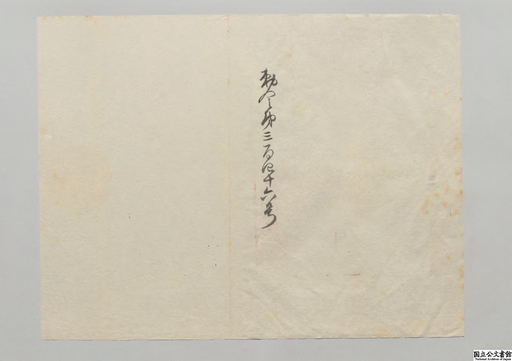 勅令第三百四十六号
国立公文書館
National Archives of Japan